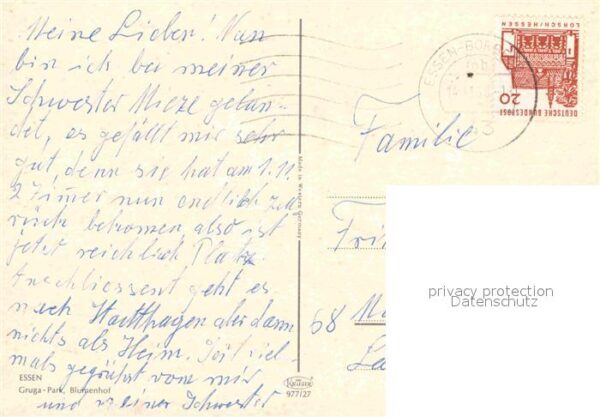 Meine Lieben! Nun
bin ich bei meiner
Schwester Mieze gelan-
det, es gefällt mir sehr
gut, denn sie hat am 1.11.
2 Zimmer nun endlich zu
bekommen, also ist
jetzt reichlich Platz.
Anschliessent geht es
nach Stadthagen aber dann
nichts als Heim. Seit viel-
mals gegrüßt von mir
und meiner Schwester
ESSEN
Gruga-Park, Blumenhof
Made in Western Germany
Krüger
977/27
ESSEN-BOR
LORSCH/HESSEN
20
DEUTSCHE BUNDESPOST
Familie
Fri
68 Ma
La
privacy protection
Datenschutz